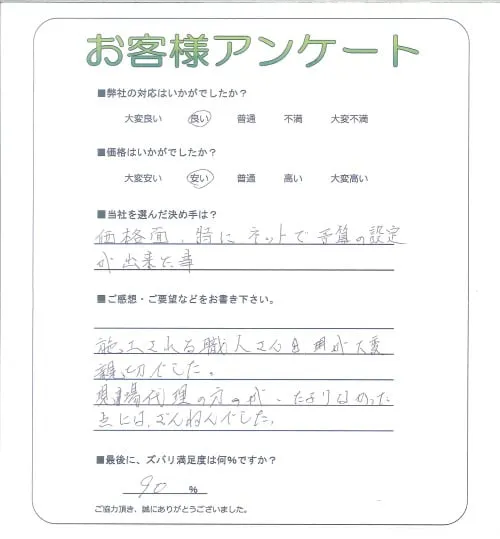 お客様アンケート
■弊社の対応はいかがでしたか？
大変良い 良い 普通 不満 大変不満
■価格はいかがでしたか？
大変安い 安い 普通 高い 大変高い
■当社を選んだ決め手は？
価格面、特にネットで予算の設定
が出来た事
■ご感想・ご要望などをお書き下さい。
施工される職人さん 大変
親切でした。
現場代理の方 が、たよりなかった
点には、ざんねんでした。
■最後に、ズバリ満足度は何%ですか？
90 %
ご協力頂き、誠にありがとうございました。